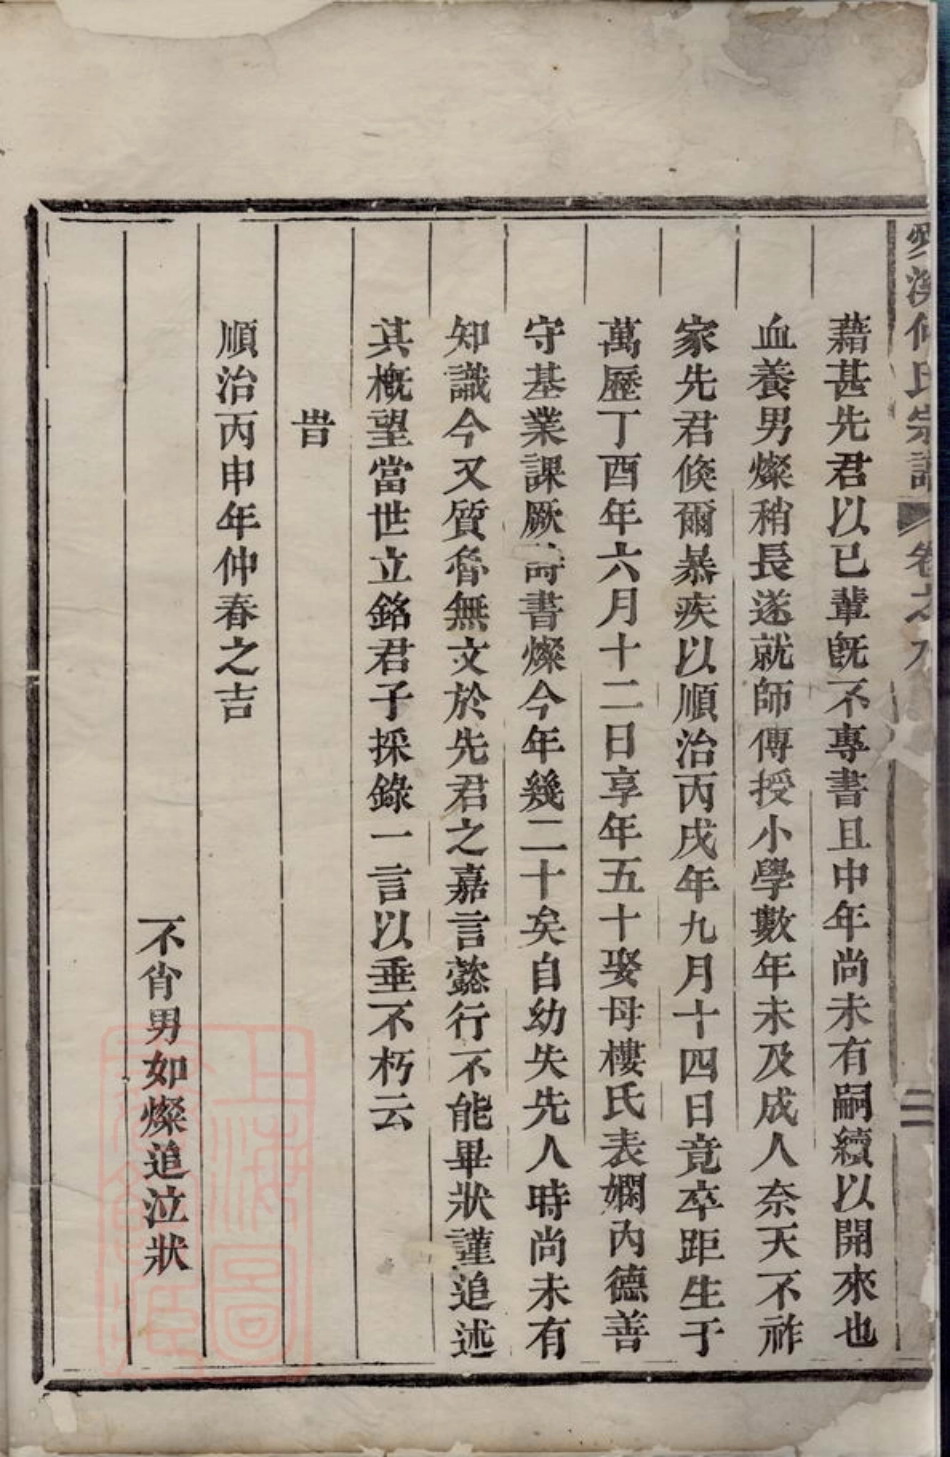 溪何氏宗譜 卷之九 二
藉甚先君以已輩既不專書且中年尚未有嗣續以開來也
血養男燦稍長遂就師傅授小學數年未及成人奈天不祚
家先君倐爾暴疾以順治丙戌年九月十四日竟卒距生于
萬歷丁酉年六月十二日享年五十娶母樓氏表嫻內德善
守基業課厥詩書燦今年幾二十矣自幼失先人時尚未有
知識今又質魯無文於先君之嘉言懿行不能畢狀謹追述
其槪望當世立銘君子採錄一言以垂不朽云
旹
順治丙申年仲春之吉
不肖男如燦追泣狀
上海圖